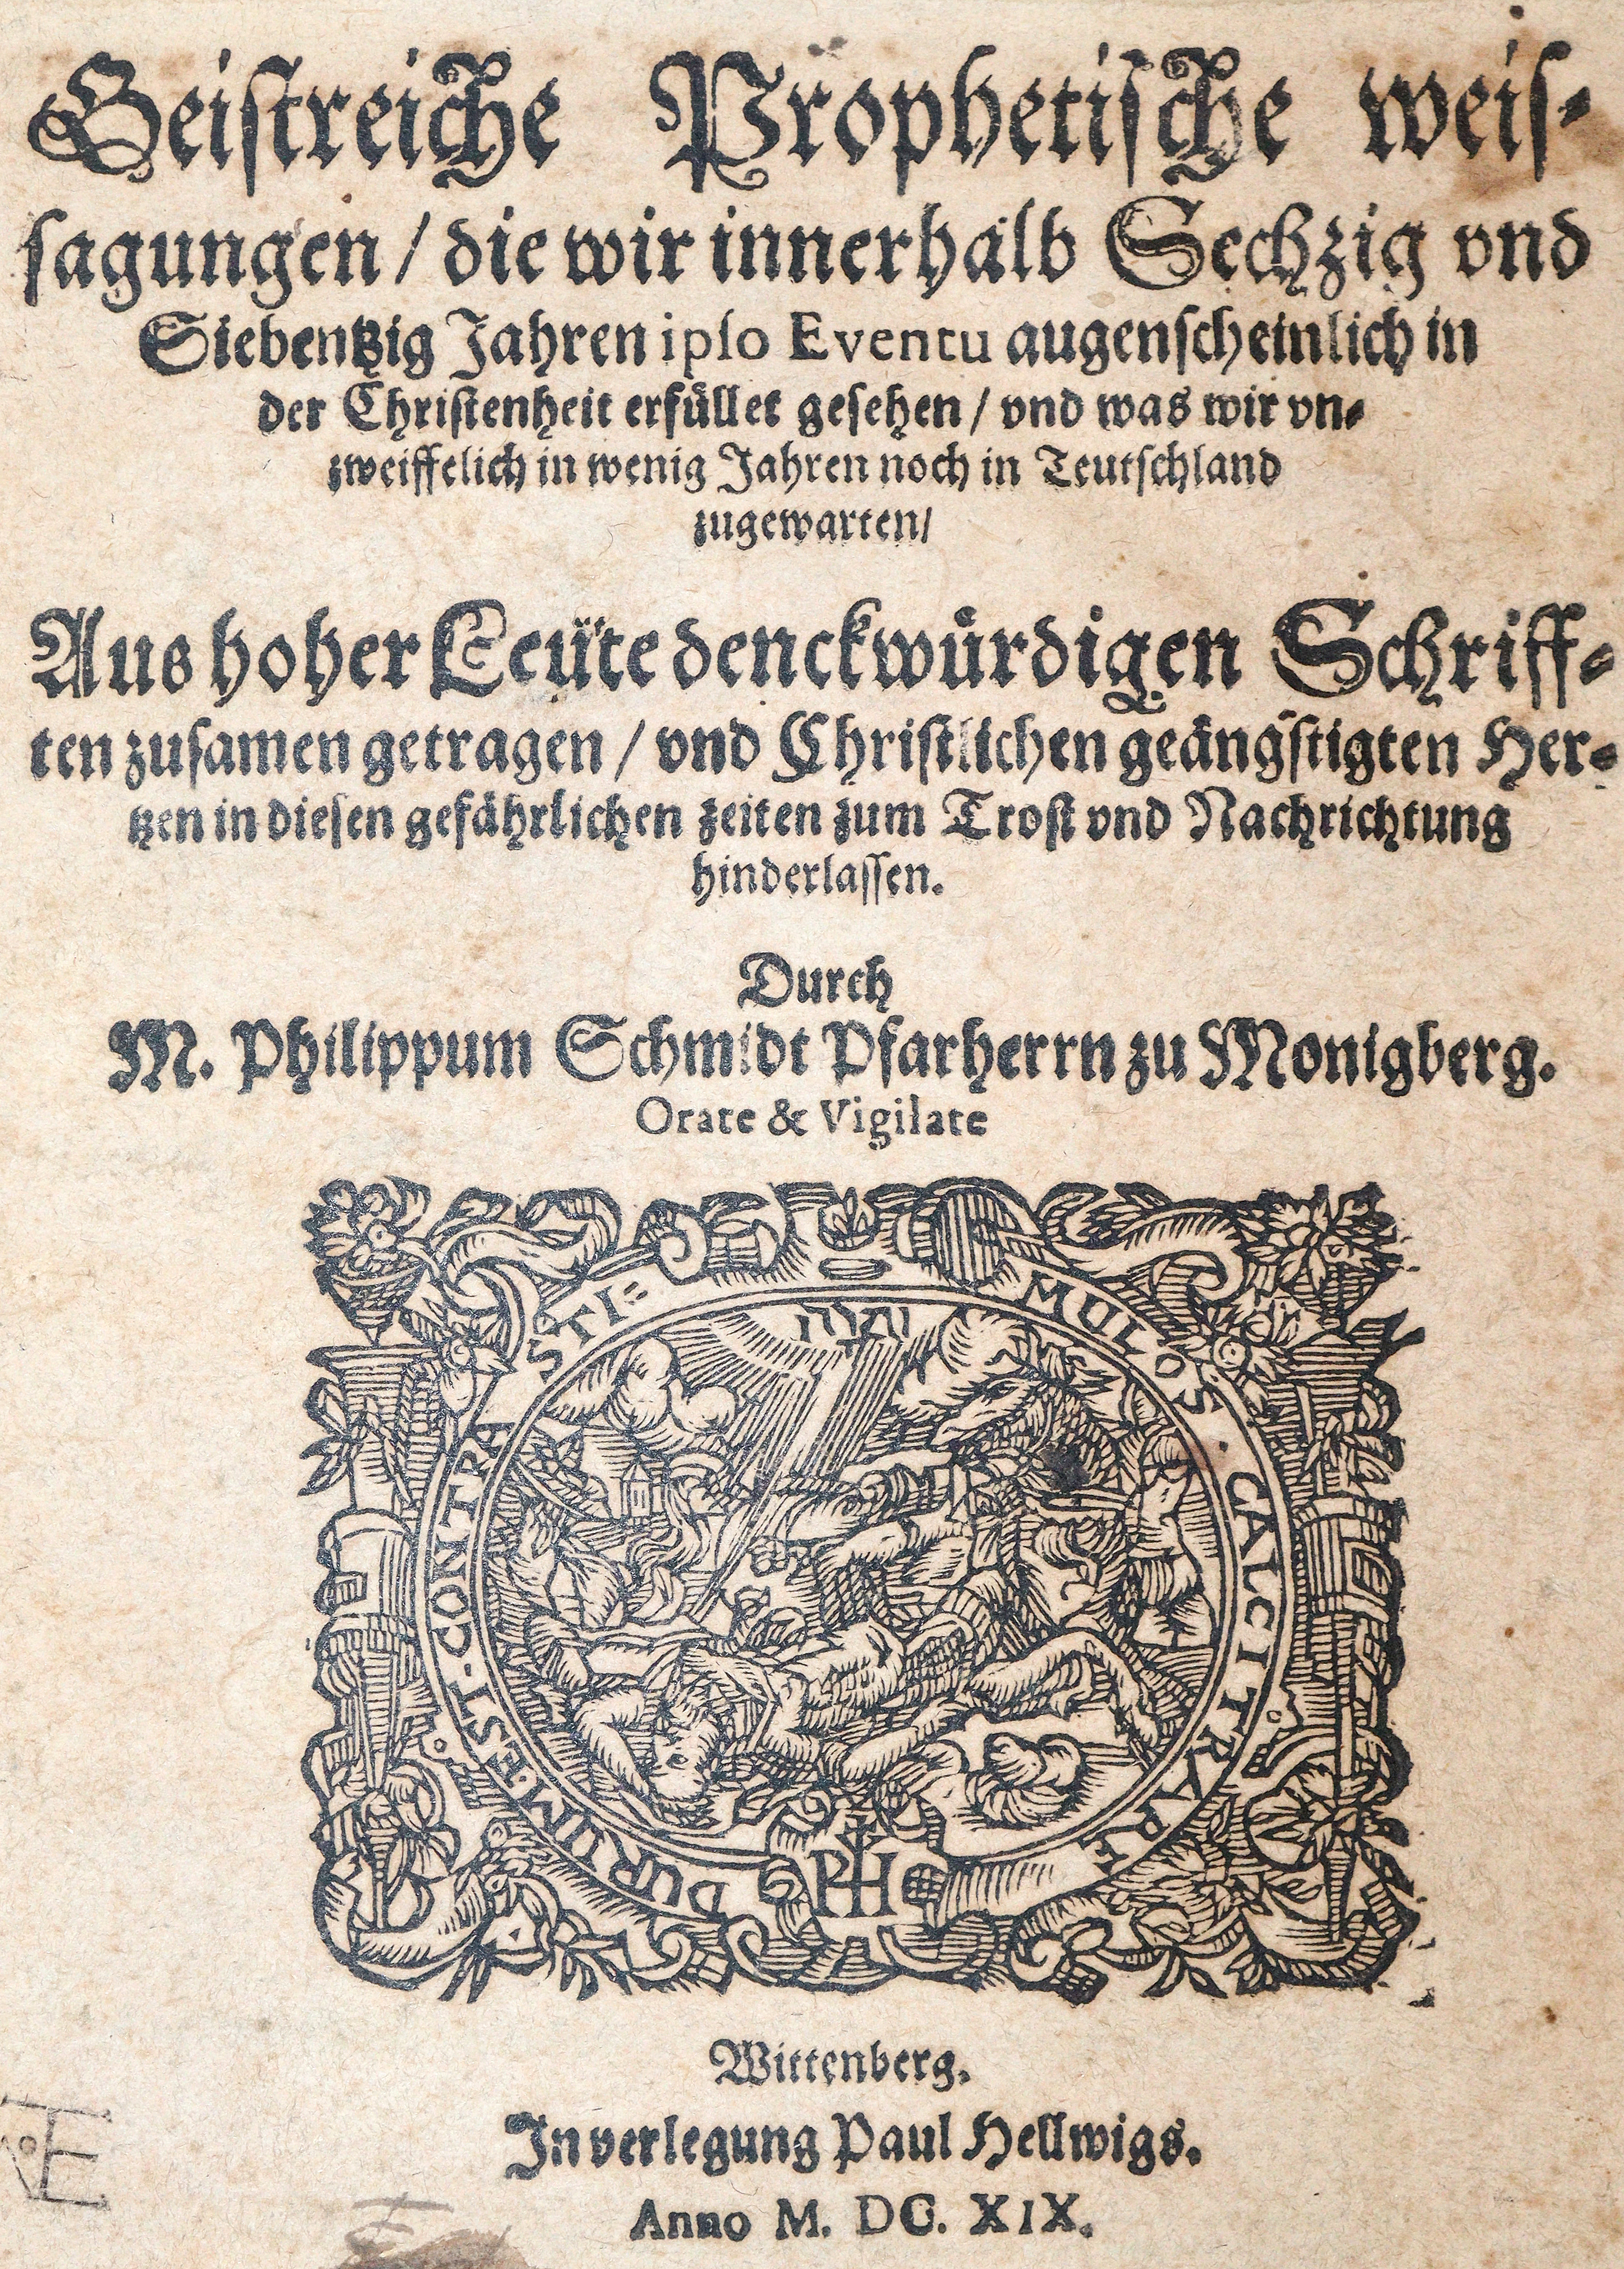 Geistreiche Prophetische weis-
sagungen / die wir innerhalb Sechzig vnd
Siebentzig Jahren ipso Eventu augenscheinlich in
der Christenheit erfüllet gesehen / vnd was wir vn-
zweiffelich in wenig Jahren noch in Teutschland
zugewarten /
Aus hoher Leüte denckwürdigen Schriff-
ten zusamen getragen / vnd Christlichen geängstigten Her-
tzen in diesen gefährlichen zeiten zum Trost vnd Nachrichtung
hinderlassen.
Durch
M. Philippum Schmidt Pfarherrn zu Monigberg.
Orate & Vigilate
DURUM EST · CONTRA STI=
MULOS · CALCITRARE
PH
Wittenberg.
In verlegung Paul Hellwigs.
Anno M. DC. XIX.